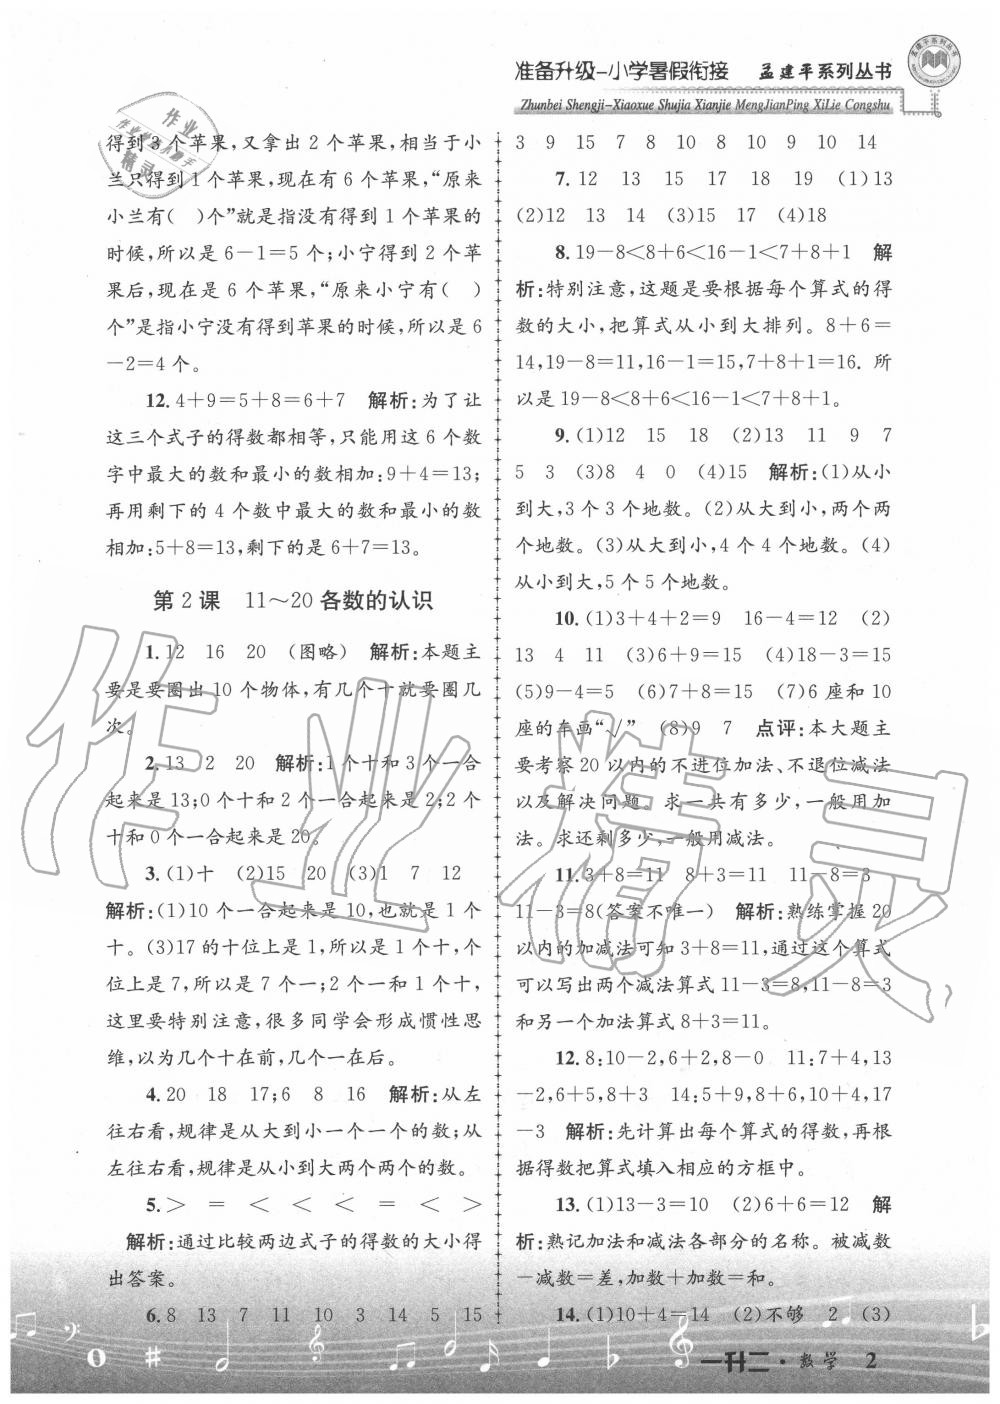 准备升级-小学暑假衔接 孟建平系列丛书
Zhunbei Shengji-Xiaoxue Shujia Xianjie MengJianPing XiLie Congshu
得到3个苹果,又拿出2个苹果,相当于小
兰只得到1个苹果,现在有6个苹果,“原来
小兰有( )个”就是指没有得到1个苹果的
时候,所以是6-1=5个;小宁得到2个苹
果后,现在是6个苹果,“原来小宁有( )
个”是指小宁没有得到苹果的时候,所以是6
-2=4个。
12.4+9=5+8=6+7 解析:为了让
这三个式子的得数都相等,只能用这6个数
字中最大的数和最小的数相加:9+4=13;
再用剩下的4个数中最大的数和最小的数
相加:5+8=13,剩下的是6+7=13。
第2课 11~20各数的认识
1.12 16 20 (图略) 解析:本题主
要是要圈出10个物体,有几个十就要圈几
次。
2.13 2 20 解析:1个十和3个一合
起来是13;0个十和2个一合起来是2;2个
十和0个一合起来是20。
3.(1)十 (2)15 20 (3)1 7 12
解析:(1)10个一合起来是10,也就是1个
十。(3)17的十位上是1,所以是1个十,个
位上是7,所以是7个一;2个一和1个十,
这里要特别注意,很多同学会形成惯性思
维,以为几个十在前,几个一在后。
4.20 18 17;6 8 16 解析:从左
往右看,规律是从大到小一个一个的数;从
左往右看,规律是从小到大两个两个的数。
5.> = < < < = < >
解析:通过比较两边式子的得数的大小得
出答案。
6.8 13 7 11 10 3 14 5 15
3 9 15 7 8 10 8 10 9 10 14
7.12 13 15 17 18 19 (1)13
(2)12 13 14 (3)15 17 (4)18
8.19-8<8+6<16-1<7+8+1 解
析:特别注意,这题是要根据每个算式的得
数的大小,把算式从小到大排列。8+6=
14,19-8=11,16-1=15,7+8+1=16. 所
以是19-8<8+6<16-1<7+8+1。
9.(1)12 15 18 (2)13 11 9 7
5 3 (3)8 4 0 (4)15 解析:(1)从小
到大,3个3个地数。(2)从大到小,两个两
个地数。(3)从大到小,4个4个地数。(4)
从小到大,5个5个地数。
10.(1)3+4+2=9 16-4=12 (2)
13 4 11 (3)6+9=15 (4)18-3=15
(5)9-4=5 (6)7+8=15 (7)6座和10
座的车画“√” (8)9 7 点评:本大题主
要考察20以内的不进位加法、不退位减法
以及解决问题。求一共有多少,一般用加
法。求还剩多少,一般用减法。
11.3+8=11 8+3=11 11-8=3
11-3=8(答案不唯一) 解析:熟练掌握20
以内的加减法可知3+8=11,通过这个算式
可以写出两个减法算式11-3=8,11-8=3
和另一个加法算式8+3=11。
12.8:10-2,6+2,8-0 11:7+4,13
-2,6+5,8+3 14:5+9,8+6,2+12,17
-3 解析:先计算出每个算式的得数,再根
据得数把算式填入相应的方框中。
13.(1)13-3=10 (2)6+6=12 解
析:熟记加法和减法各部分的名称。被减数
-减数=差,加数+加数=和。
14.(1)10+4=14 (2)不够 2 (3)
一升二·数学 2
作业精灵